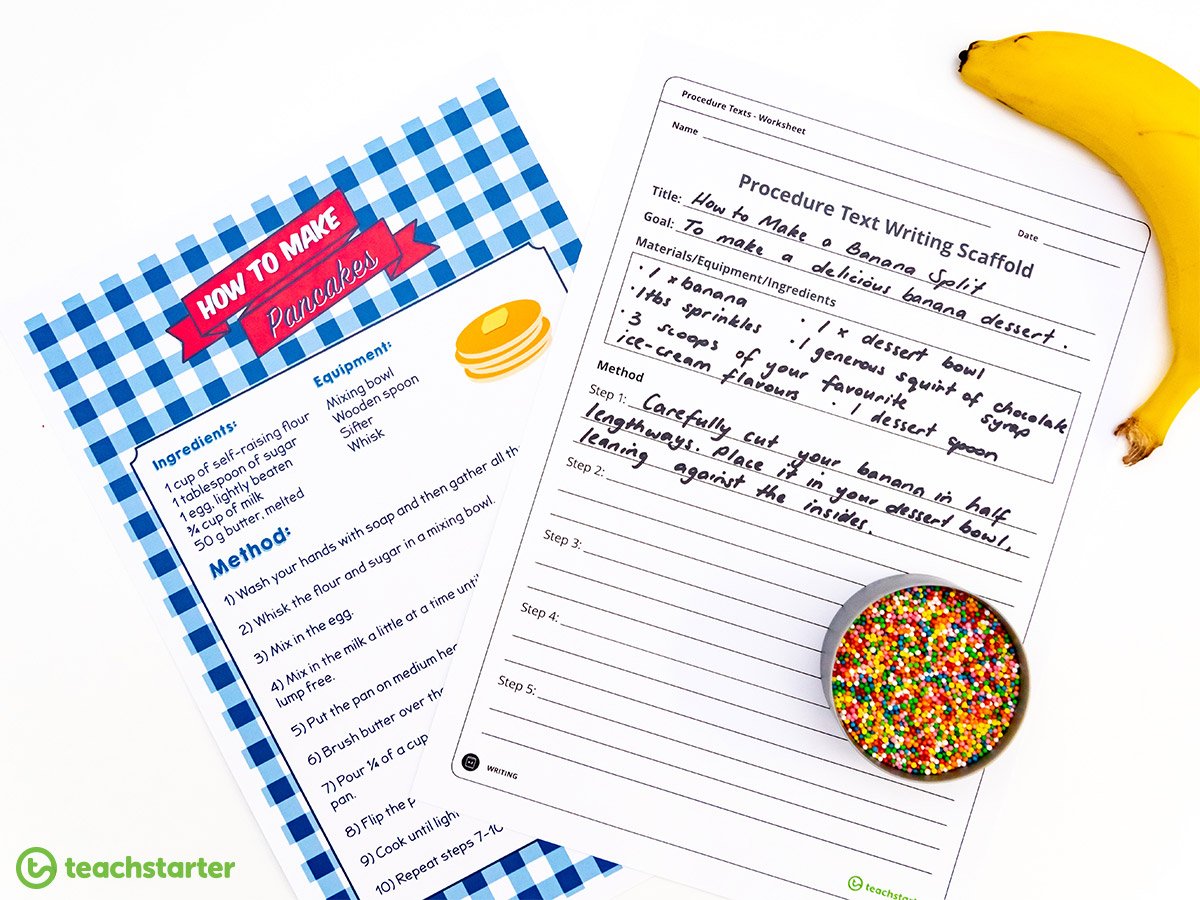 HOW TO MAKE
Pancakes
Ingredients:
1 cup of self-raising flour
1 tablespoon of sugar
1 egg, lightly beaten
¾ cup of milk
50 g butter, melted
Equipment:
Mixing bowl
Wooden spoon
Sifter
Whisk
Method:
1) Wash your hands with soap and then gather all
2) Whisk the flour and sugar in a mixing bowl.
3) Mix in the egg.
4) Mix in the milk a little at a time until
lump free.
5) Put the pan on medium
6) Brush butter over
7) Pour ¼ of a cup
pan.
8) Flip the
9) Cook until
10) Repeat steps 7-10
Procedure Texts - Worksheet
Name
Date
Procedure Text Writing Scaffold
Title: How to Make a Banana Split
Goal: To make a delicious banana dessert.
Materials/Equipment/Ingredients
· 1 x banana
· 1 tbs sprinkles
· 3 scoops of your favourite
ice-cream flavours
· 1 x dessert bowl
· 1 generous squirt of chocolate
syrup
· 1 dessert spoon
Method
Step 1: Carefully cut your banana in half
lengthways. Place it in your dessert bowl,
leaning against the insides.
Step 2:
Step 3:
Step 4:
Step 5:
WRITING
teachstarter
teachstarter